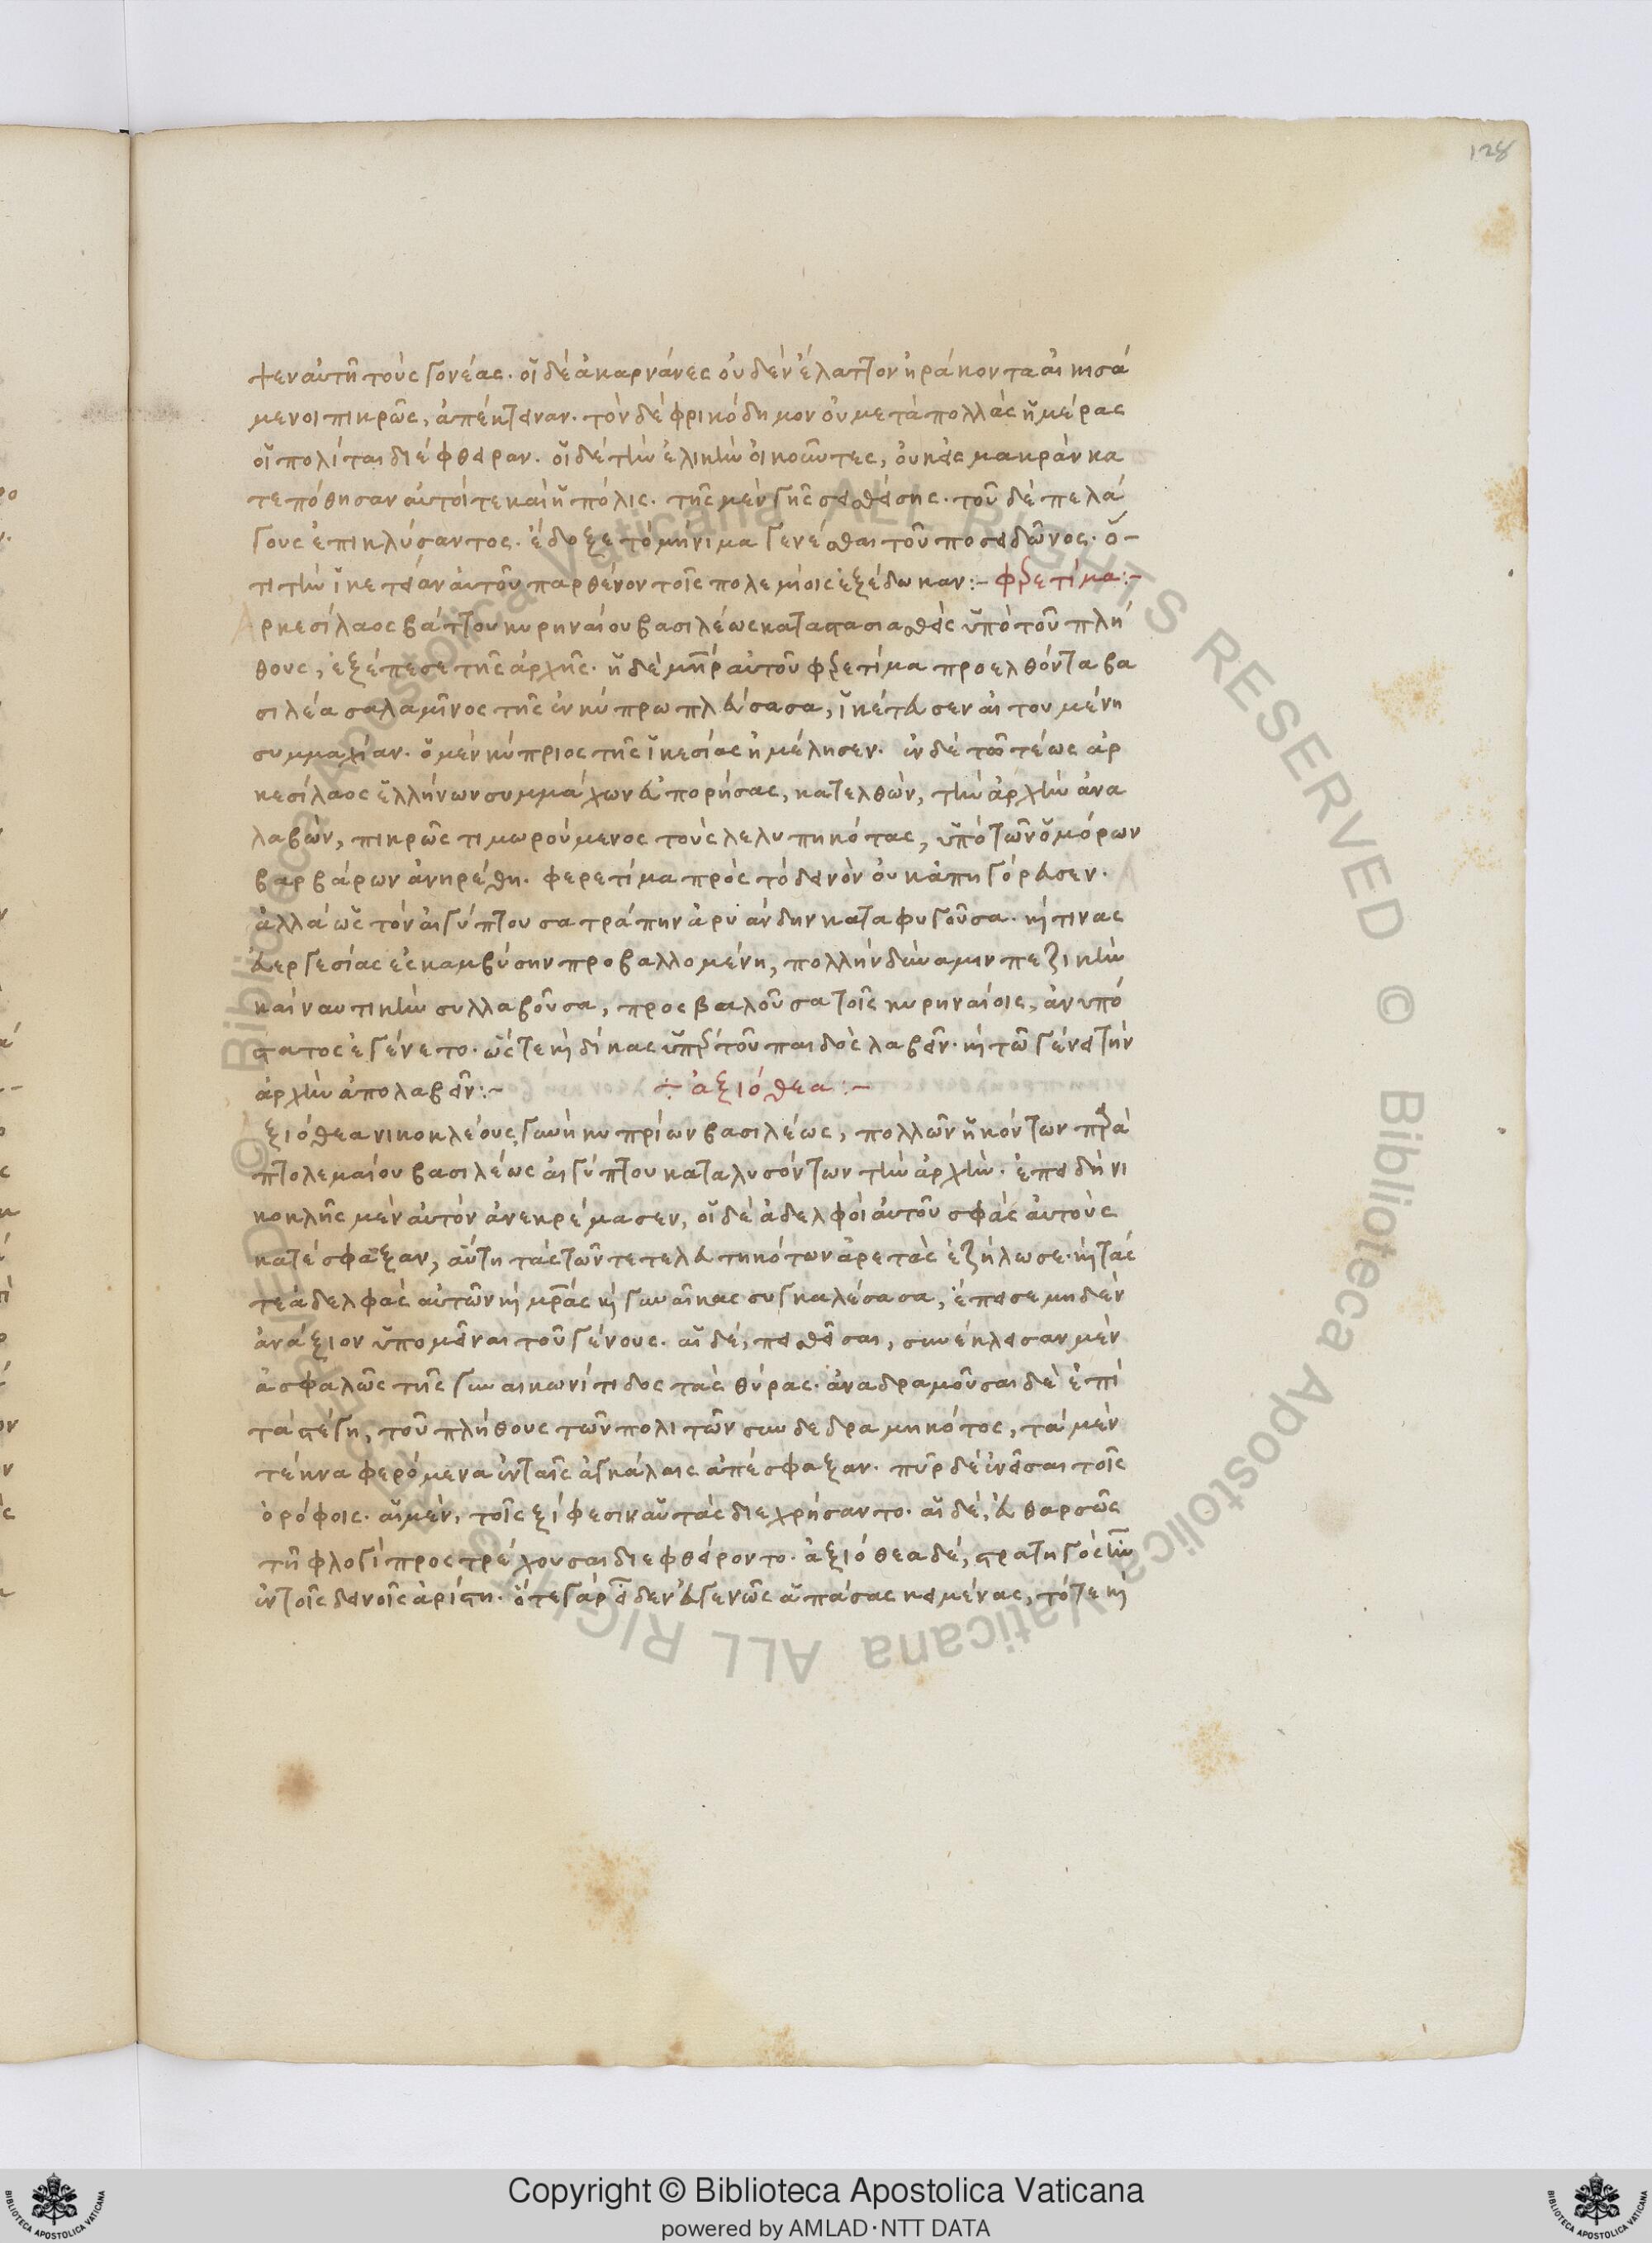 128
ψεν αὐτῆ τοὺς γονέας. οἱ δὲ ἀκαρνάνες οὐδὲν ἔλαττον ἢ ράκοντα αἰκισά
μενοι πικρῶς, ἀπέκτειναν. τὸν δὲ φρικόδημον οὐ μετὰ πολλὰς ἡμέρας
οἱ πολίται διέφθειραν. οἱ δὲ τὴν ἑλικὴν οἰκοῦντες, οὐκ εἰς μακρὰν κα
τεπόθησαν αὐτοί τε καὶ ἡ πόλις. τῆς μὲν γῆς σεισθείσης. τοῦ δὲ πελά
γους ἐπικλύσαντος. ἔδοξε τὸ μήνιμα γενέσθαι τοῦ ποσειδῶνος. ὅ-
τι τὴν ἱκετείαν αὐτοῦ παρθένον τοῖς πολεμίοις ἐξέδωκαν:- φρετίμα:-
ρκεσίλαος βάττου κυρηναίου βασιλέως καταστασιασθεὶς ὑπὸ τοῦ πλή
θους, ἐξέπεσε τῆς ἀρχῆς. ἡ δὲ μηρ αὐτοῦ φρετίμα προελθόντα βα
σιλέα σαλαμῖνος τῆς ἐν κύπρω πλεύσασα, ἱκέτευσεν αἰτουμένη
συμμαχίαν. ὁ μὲν κύπριος τῆς ἱκεσίας ἠμέλησεν. ἐν δὲ τῶ τέως ἀρ
κεσίλαος ἑλλήνων συμμάχων εὐπορήσας, κατελθὼν, τὴν ἀρχὴν ἀνα
λαβὼν, πικρῶς τιμωρούμενος τοὺς λελυπηκότας, ὑπὸ τῶν ὁμόρων
βαρβάρων ἀνηρέθη. φερετίμα πρὸς τὸ δεινὸν οὐκ ἀπηγόρευσεν.
ἀλλὰ ὡς τὸν αἰγύπτου σατράπην ἀρυάνδην καταφυγοῦσα. καί τινας
εὐεργεσίας εἰς καμβύσην προβαλλομένη, πολλὴν δύναμιν πεζικὴν
καὶ ναυτικὴν συλλαβοῦσα, προςβαλοῦσα τοῖς κυρηναίοις, ἀνυπό
στατος ἐγένετο. ὥςτε καὶ δίκας ὑπὲρ τοῦ παιδὸς λαβεῖν. καὶ τῶ γένει τὴν
ἀρχὴν ἀπολαβεῖν:- ÷ ἀξιόθεα:-
ξιόθεα νικοκλέους γυνὴ κυπρίων βασιλέως, πολλῶν ἡκόντων πρὰ
πτολεμαίου βασιλέως αἰγύπτου καταλυσόντων τὴν ἀρχὴν. ἐπειδὴ νι
κοκλῆς μὲν αὐτὸν ἀνεκρέμασεν, οἱ δὲ ἀδελφοὶ αὐτοῦ σφὰς αὐτοὺς
κατέσφαξαν, αὕτη τὰς τῶν τετελευτηκότων ἀρετὰς ἐζήλωσε. καὶ τάς
τε ἀδελφὰς αὐτῶν καὶ μρας καὶ γυναῖκας συγκαλέσασα, ἔπεισε μηδὲν
ἀνάξιον ὑπομεῖναι τοῦ γένους. αἱ δὲ, πεισθεῖσαι, συνέκλεισαν μὲν
ἀσφαλῶς τῆς γυναικωνίτιδος τὰς θύρας. ἀναδραμοῦσαι δὲ ἐπὶ
τὰ στέγη, τοῦ πλήθους τῶν πολιτῶν συνδεδραμηκότος, τὰ μὲν
τέκνα φερόμενα ἐν ταῖς ἀγκάλαις ἀπέσφαξαν. πῦρ δὲ ἐνεῖσαι τοῖς
ὀρόφοις. αἱ μὲν, τοῖς ξίφεσιν αὑτὰς διεχρήσαντο. αἱ δὲ, εὐθαρσῶς
τῆ φλογὶ προςτρέχουσαι διεφθείροντο. ἀξιόθεα δὲ, στρατηγὸς ἦν
ἐν τοῖς δεινοῖς ἀρίστη. ὅτε γὰρ εἶδεν εὐγενῶς ἁπάσας κειμένας, τότε καὶ
Copyright © Biblioteca Apostolica Vaticana
powered by AMLAD·NTT DATA
© Biblioteca Apostolica Vaticana ALL RIGHTS RESERVED
© Biblioteca Apostolica Vaticana ALL RIGHTS RESERVED
BIBLIOTECA APOSTOLICA VATICANA
BIBLIOTECA APOSTOLICA VATICANA